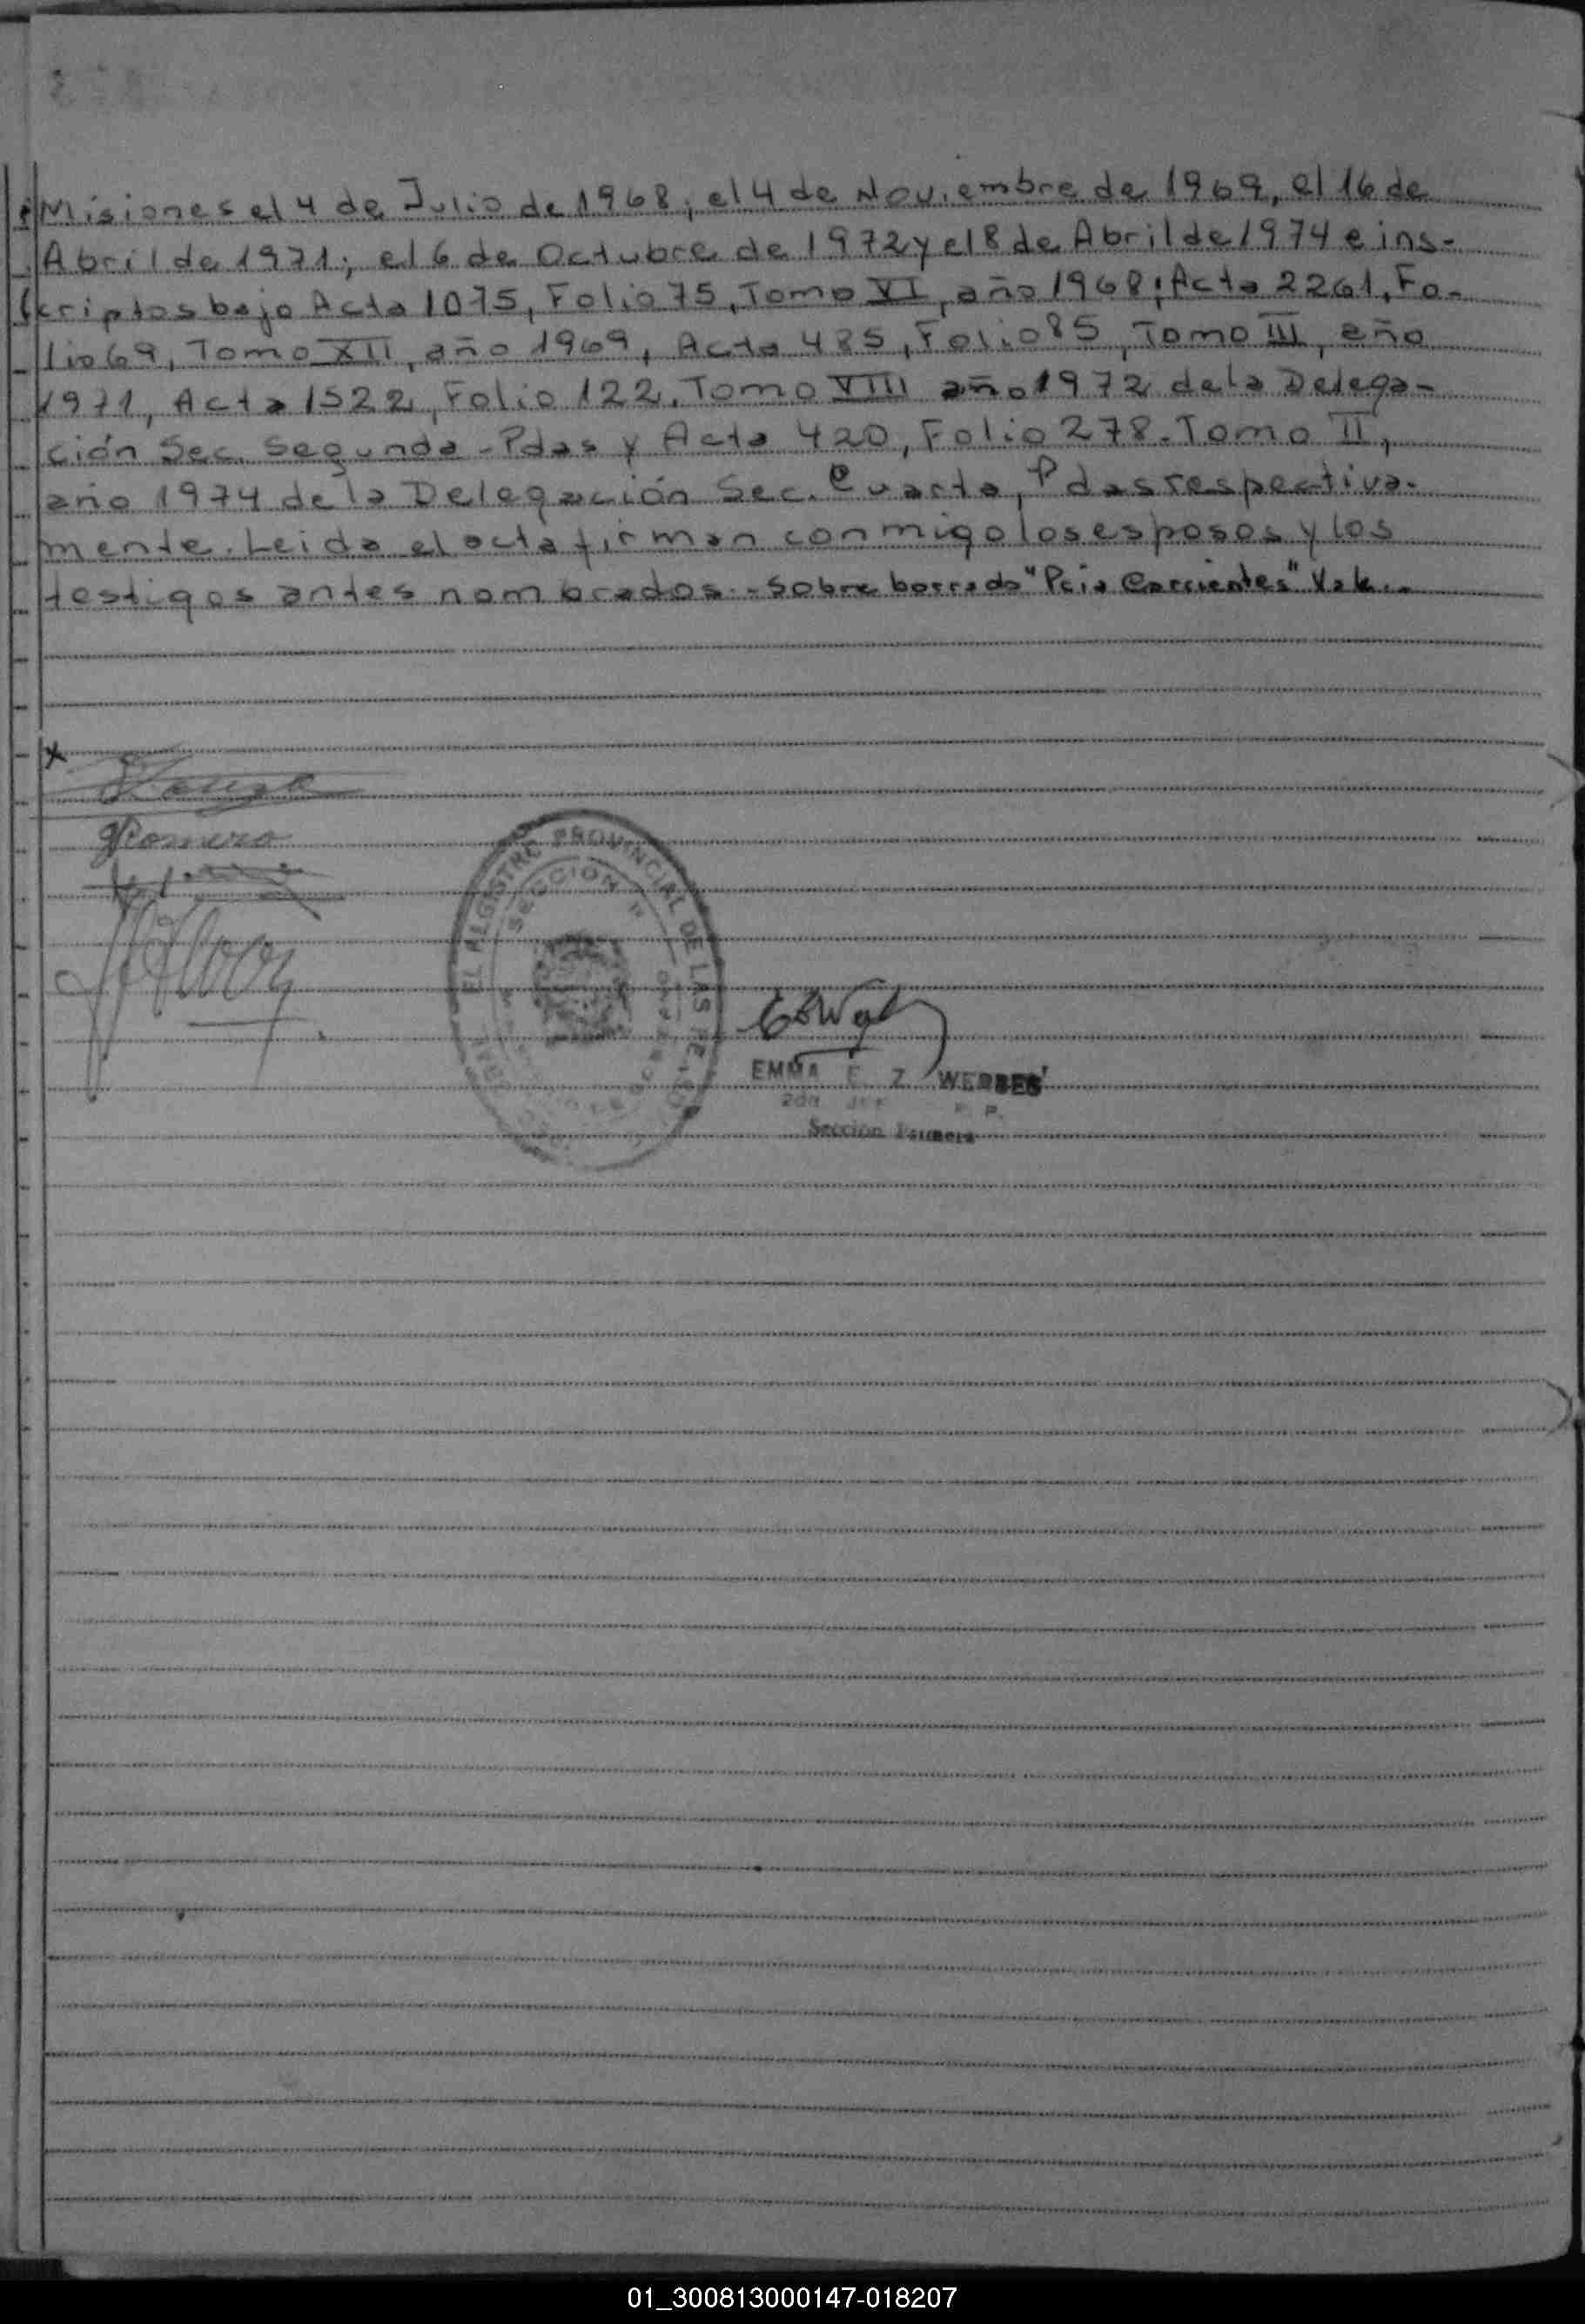 Misiones el 4 de Julio de 1968; el 4 de Noviembre de 1969, el 16 de
Abril de 1971; el 6 de Octubre de 1972 y el 8 de Abril de 1974 e ins-
criptos bajo Acta 1075, Folio 75, Tomo VI, año 1968; Acta 2261, Fo-
lio 69, Tomo XII, año 1969, Acta 485, Folio 85, Tomo III, año
1971, Acta 1522, Folio 122, Tomo VIII año 1972 de la Delega-
ción Sec. Segunda - Pdas y Acta 420, Folio 278. Tomo II,
año 1974 de la Delegación Sec. Cuarta, Pdas respectiva-
mente. Leida el acta firman conmigo los esposos y los
testigos antes nombrados.- Sobre borrado "Pcia Corrientes" Vale.-
x
Romero
EL REGISTRO PROVINCIAL DE LAS
SECCION
EMMA E. Z. WERBES
2da
Sección Primera
01_300813000147-018207